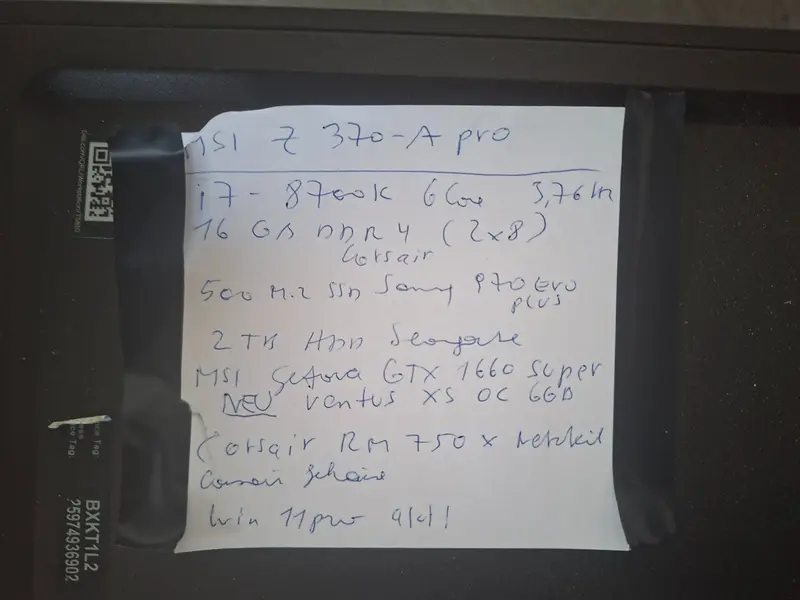 MSI Z 370-A pro
i7-8700K 6 Core 3,7GHz
16 GB DDR4 (2x8)
Corsair
500 M.2 SSD 970 EVO
plus
2 TB HDD Seagate
MSI GTX 1660 super
NEU ventus XS OC 6GB
Corsair RM 750x Netzteil
Corsair
Win 11 pro
BXKT1L2
25974936902